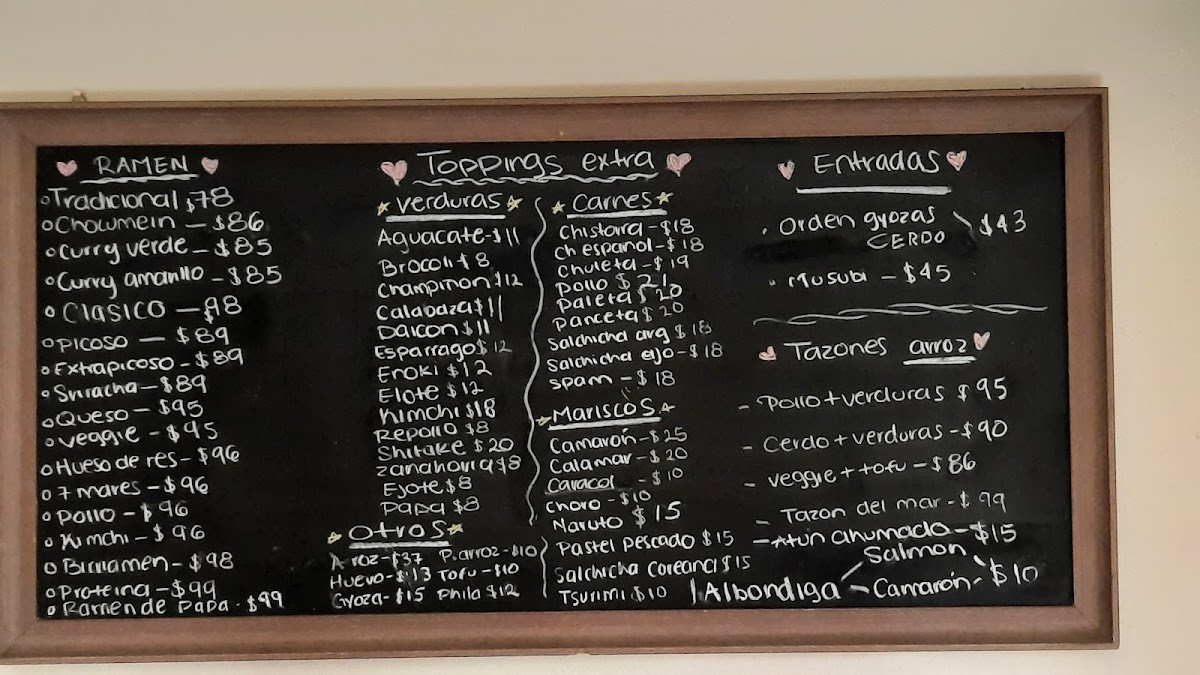 RAMEN
Tradicional $78
Chowmein - $86
Curry verde - $85
Curry amarillo - $85
Clasico - $98
Picoso - $89
Extrapicoso - $89
Sriracha - $89
Queso - $95
Veggie - $95
Hueso de res - $96
7 mares - $96
Pollo - $96
Kimchi - $96
Birriamen - $98
Proteina - $99
Ramen de Papa - $99
Toppings extra
Verduras
Aguacate - $11
Brocoli $8
Champiñon $12
Calabaza $11
Daicon $11
Esparrago $12
Enoki $12
Elote $12
Kimchi $18
Repollo $8
Shitake $20
Zanahorra $8
Ejote $8
Papa $8
Otros
Arroz - $37 P.arroz - $10
Huevo - $13 Tofu - $10
Gyoza - $15 Phila $12
Carnes
Chistorra - $18
Ch español - $18
Chuleta - $19
Pollo $21
Paleta $20
Panceta $20
Salchicha arg $18
Salchicha ejo - $18
Spam - $18
Mariscos
Camarón - $25
Calamar - $20
Caracol - $10
Choro - $10
Naruto $15
Pastel Pescado $15
Salchicha Coreana $15
Tsurimi $10
Entradas
Orden gyozas $43
CERDO
Musubi - $45
Tazones arroz
- Pollo + verduras $95
- Cerdo + verduras - $90
- Veggie + tofu - $86
- Tazon del mar - $99
- Atún ahumado - $15
Salmon
Albondiga - Camarón - $10